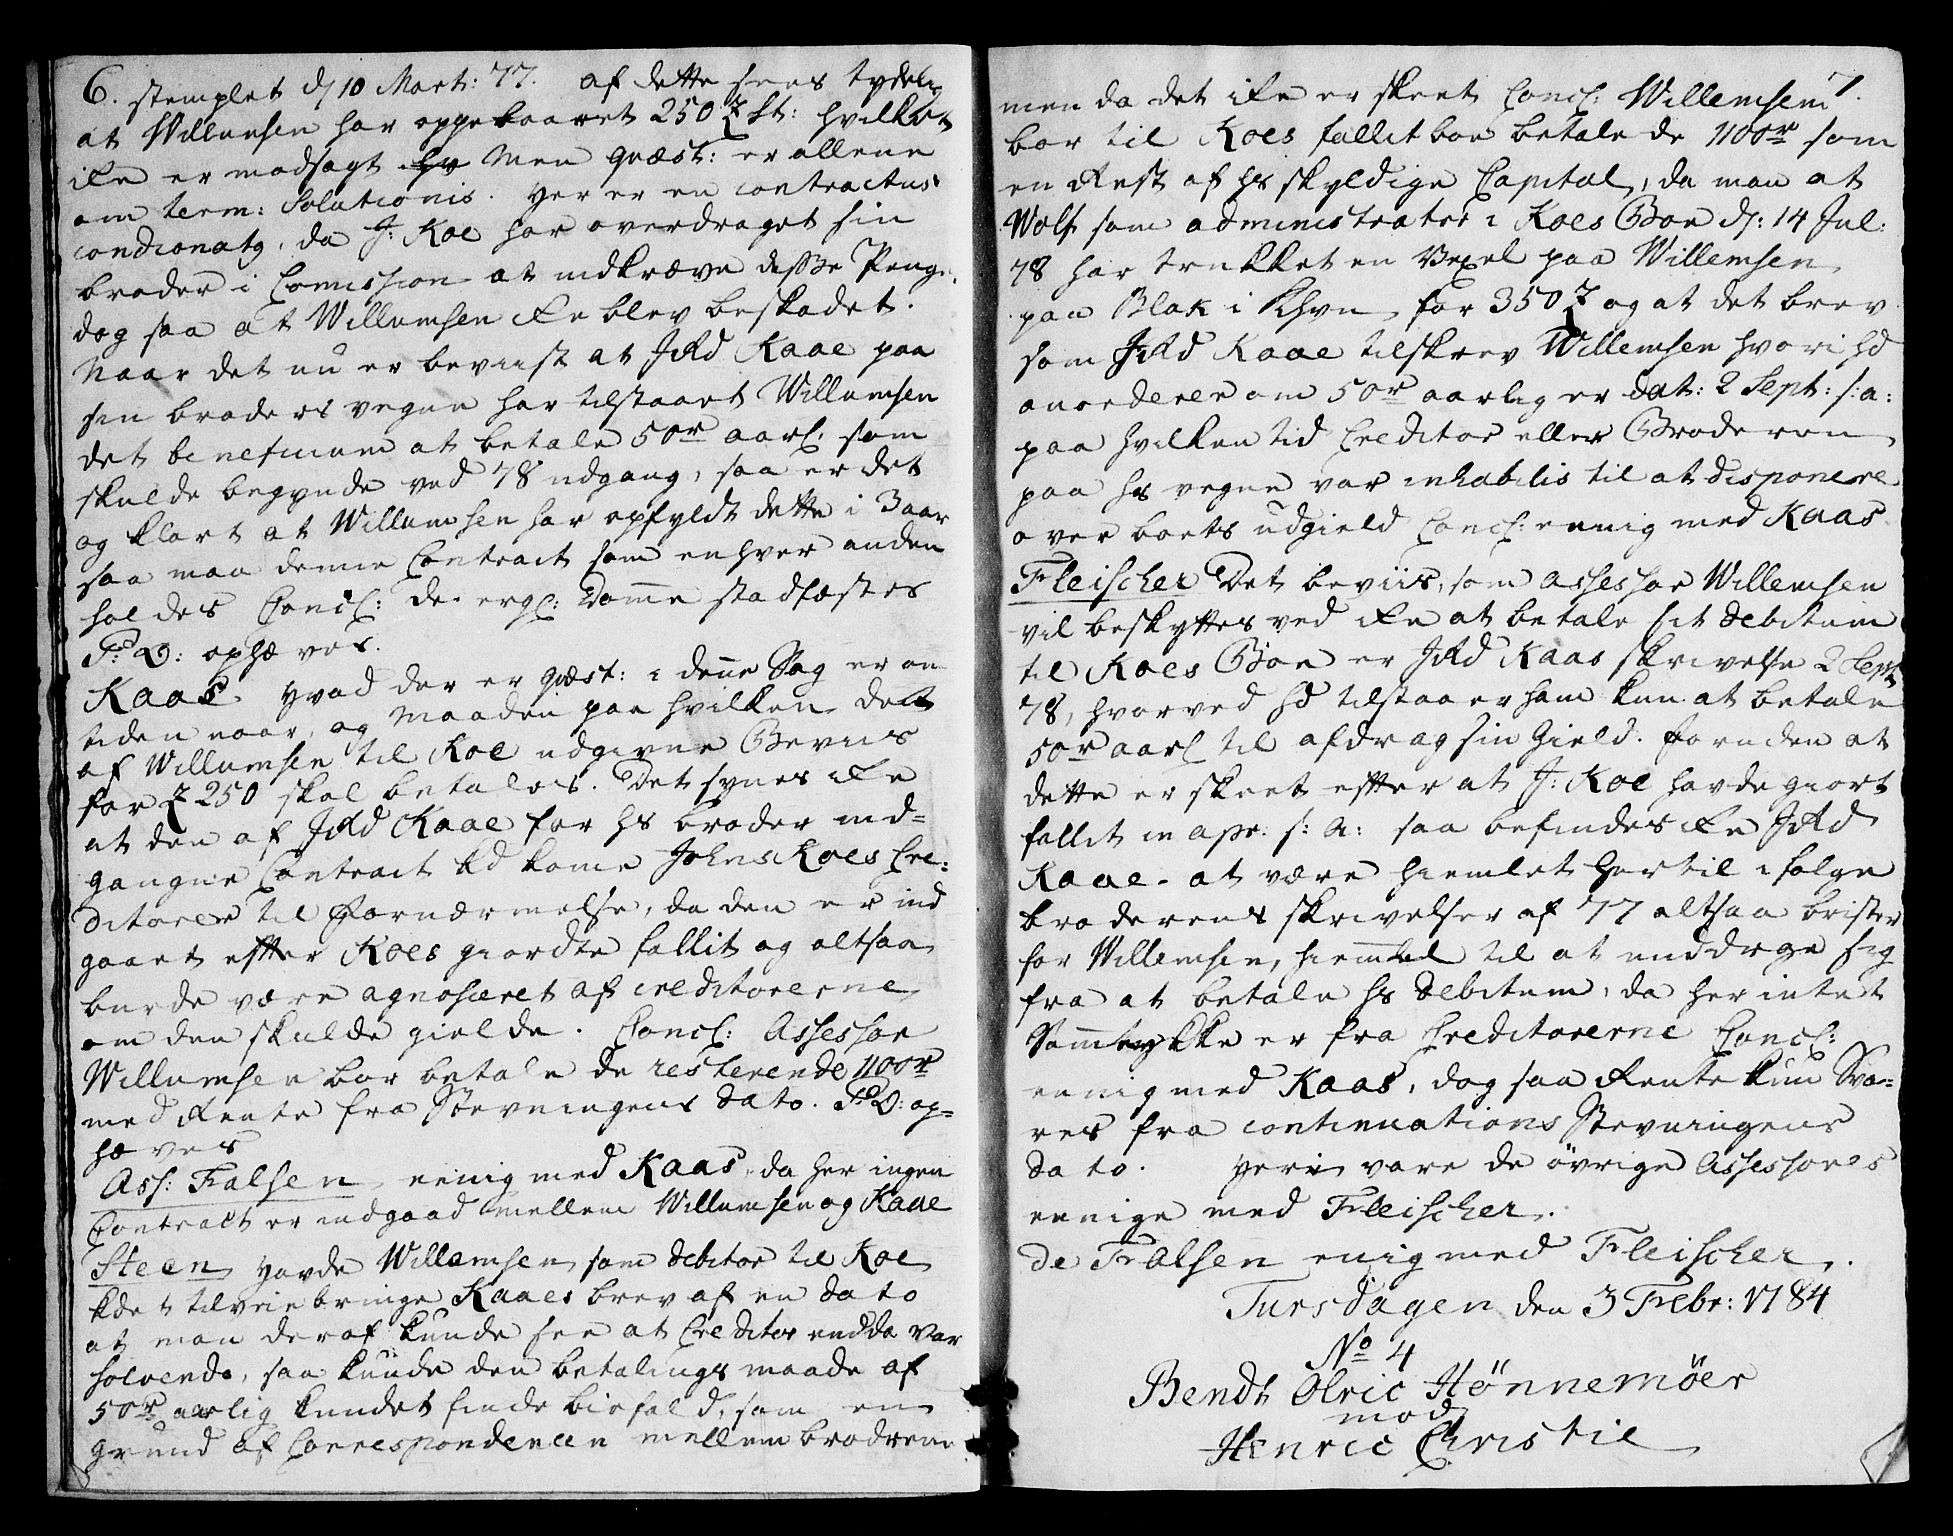 6. stemplet d/ 10 Mart: 77. af dette sees tydelig
at Willumsen har oppebaaret 250 £ St: hvilket
ike er modsagt Men qvæst: er allene
om term: Solutionis. Her er en contractus
condionatg, da J: Koe har overdraget sin
broder i Comission at indkræve disse Penge
dog saa at Willumsen ike blev beskadet.
Naar det nu er beviist at Kaae paa
sin broders vegne har tilstaaet Willumsen
det beneficium at betale 50r aarl: som
skulde begynde ved 78 udgang, saa er det
og klart at Willumsen har opfyldt dette i 3 aar
saa maa denne Contract som enhver anden
holdes Concl: De ergl: Domme stadfæstes
ophæves.
Kaas. Hvad der er qvæst: i denne Sag er om
tiden naar, og Maaden paa hvilken dett
af Willumsen til Koe udgivne Beviis
for £ 250 skal betales. Det synes ike
at den af Kaae for hs broder ind=
gangne Contract kd komme Johns Koes Cre:
ditorer til Fornærmelse, da den er ind
gaaet effter Koes giordte fallit og altsaa
burde være agnosceret af creditorerne
om den skulde gielde. Concl: Assessor
Willumsen bør betale de resterende 1100r
med Rente fra Stevningens dato. op=
hæves
Ass: Falsen eenig med Kaas, da her ingen
Contract er indgaaed mellem Willumsen og Kaae
Steen, Havde Willemsen som debitor til Koe
kdet tilveiebringe Kaaes brev af en dato
at man deraf kunde see at Creditor endda var
solvendo, saa kunde den betalings maade af
50r aarlig kundet finde biefald, som en
grund af Correspondencen mellem brødrene
7.
men da det ike er skeet Concl: Willemsen
bør til Koes fallitboe betale de 1100r som
en Rest af hs skyldige Capital, da man at
Wolf som administrator i Koes Boe d/: 14 Jul:
78 har trukket en Vexel paa Willemsen
paa Blak i Khvn for 350 £ og at det brev
som Kaae tilskrev Willemsen hvori hd
anorderer om 50r aarlig er dat: 2 Sept: s: a:
paa hvilken tid Creditor eller Broderen
paa hs vegne var inhabilis til at disponere
over boets udgield Concl: eenig med Kaas
Fleischer Det beviis, som assessor Willemsen
vil beskyttes ved ike at betale sit debitum
til Koes Boe er Kaas skrivelse 2 Sept
78, hvorved hd tilstaaer ham kun at betale
50r aarl til afdrag sin Gield. foruden at
dette er skeet effter at J: Koe havde giort
fallit in apr. s: a: saa befindes ike
Kaae at være hiemlet hertil ifølge
broderens skrivelser af 77 altsaa brister
for Willemsen, hiemmel til at unddrage sig
fra at betale hs debitum, da her intet
Samtykke er fra Creditorerne Concl:
eenig med Kaas, dog saa Rente kun Sva=
res fra continuations Stevningens
dato. Heri vare de øvrige Assessores
eenige med Fleischer.
de Falsen enig med Fleischer.
Tirsdagen den 3 Febr: 1784
No 4
Bendt Olric Hønnemøer
mod
Henric Christie